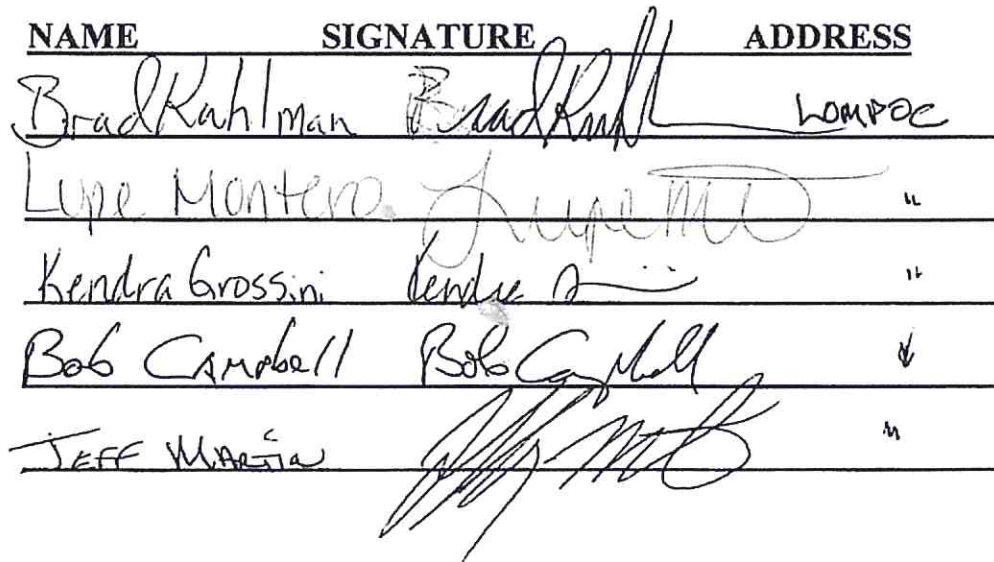 NAME SIGNATURE ADDRESS
Brad Kahlman Brad Kahl LOMPOC
Lupe Montero Lupe M "
Kendra Grossini Kendra "
Bob Campbell Bob Campbell "
JEFF MARTIN "